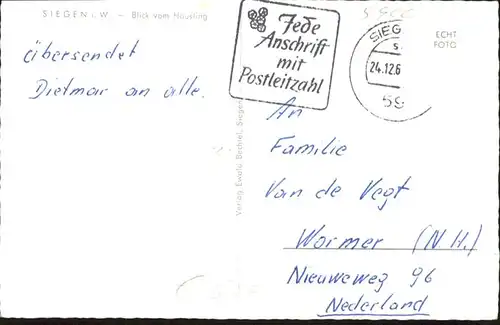 SIEGEN i. W. – Blick vom Häusling
5900
Jede
Anschrift
mit
Postleitzahl
SIEG
24.12.6
59
ECHT
FOTO
übersendet
Dietmar an alle.
Verlag Ewald Bechtel, Siegen
An
Familie
Van de Vegt
Wormer (N.H.)
Nieuweweg 96
Nederland